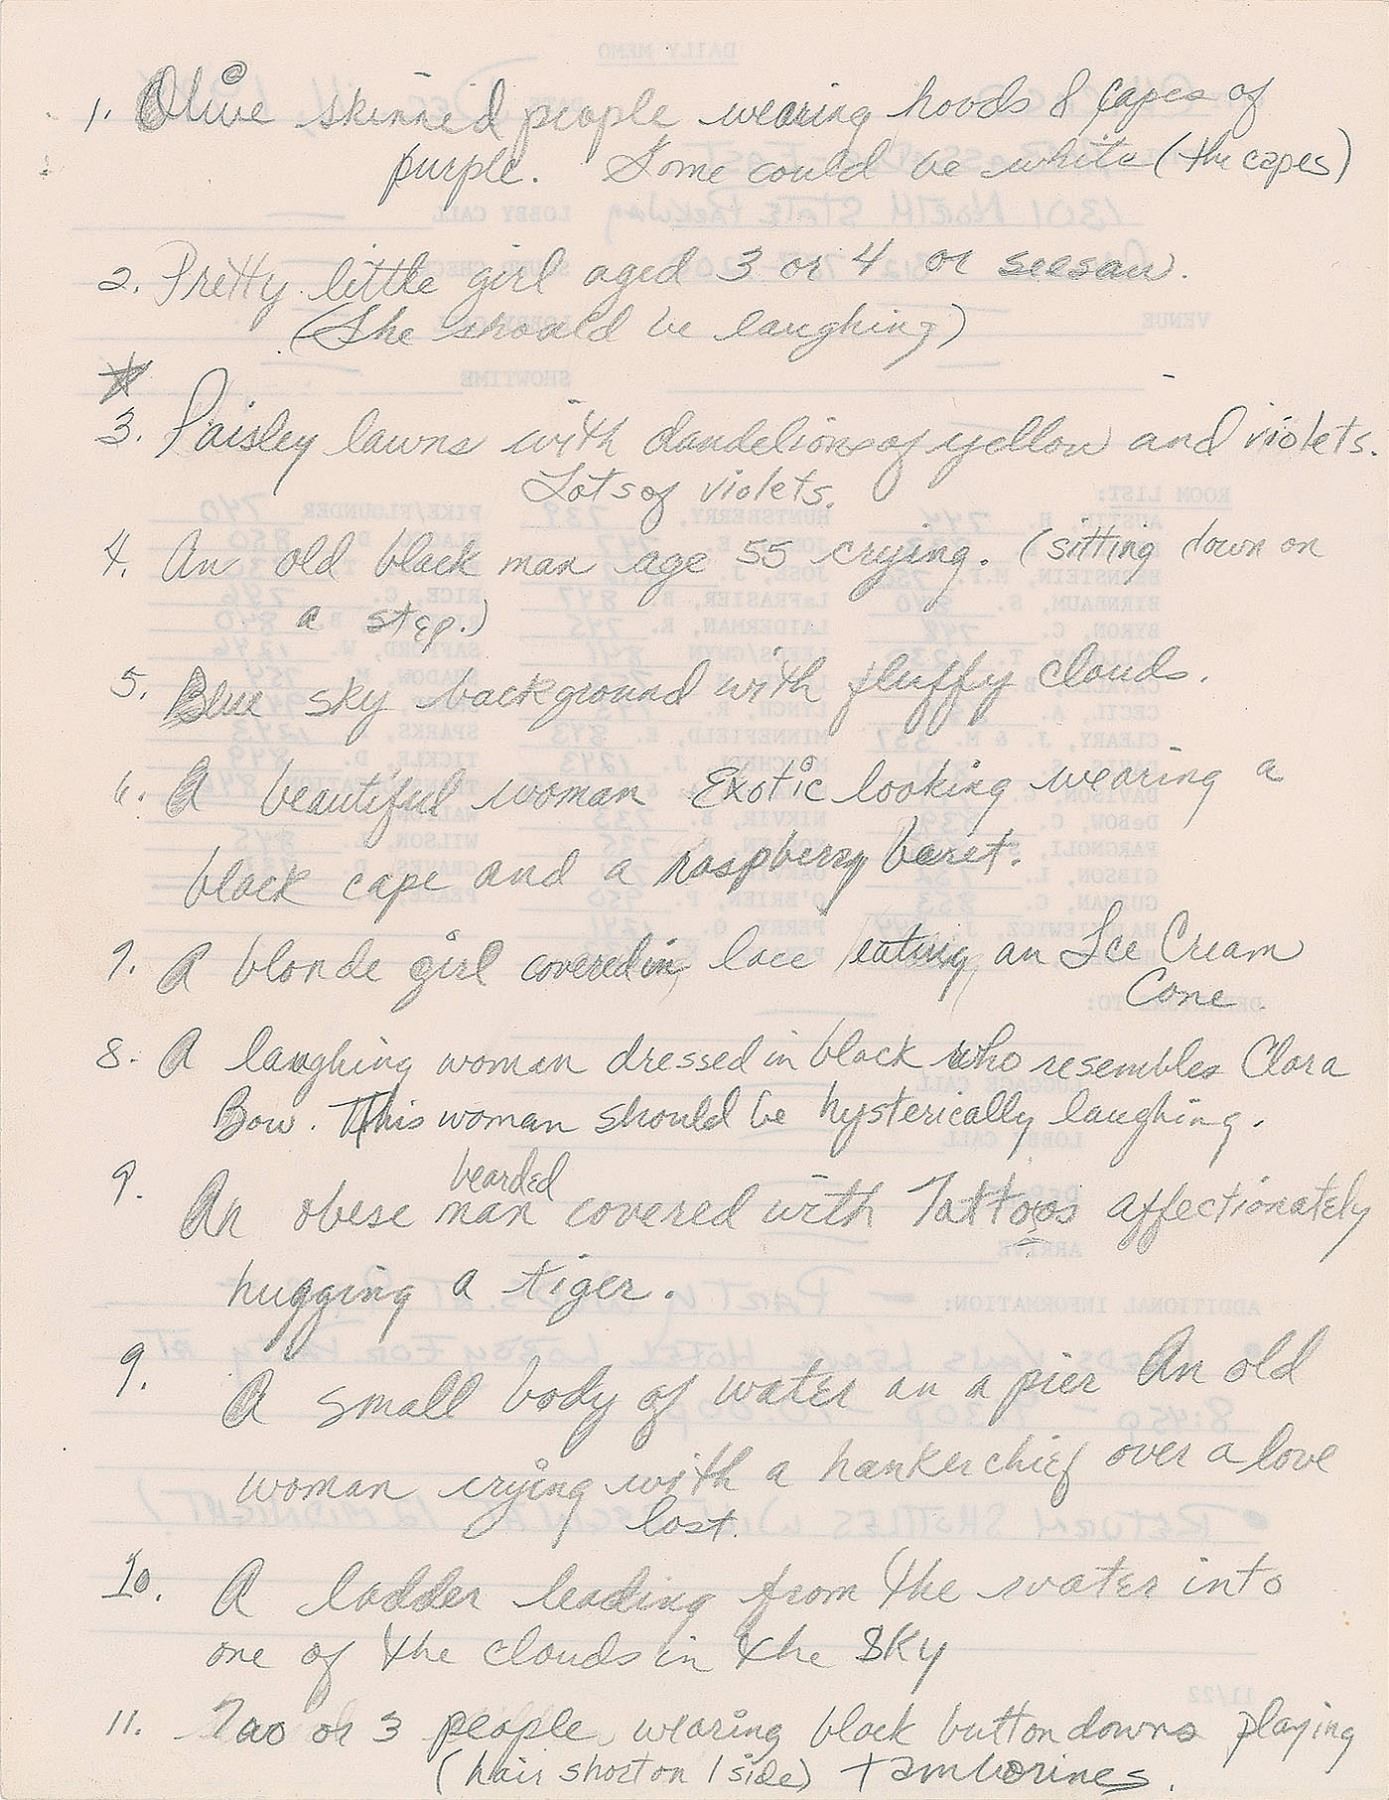 1. Olive skinned people wearing hoods & capes of
purple. Some could be white (the capes)
2. Pretty little girl aged 3 or 4 or seesaw.
(She should be laughing)
3. Paisley lawns with dandelions of yellow and violets.
Lots of violets.
4. An old black man age 55 crying. (sitting down on
a step.)
5. Blue sky background with fluffy clouds.
6. A beautiful woman Exotic looking wearing a
black cape and a raspberry beret.
7. A blonde girl covered in lace eating an Ice Cream
Cone.
8. A laughing woman dressed in black who resembles Clara
Bow. This woman should be hysterically laughing.
bearded
9. An obese man covered with Tattoos affectionately
hugging a tiger.
9. A small body of water an a pier An old
woman crying with a hankerchief over a love
lost.
10. A ladder leading from the water into
one of the clouds in the sky
11. Two or 3 people wearing black button downs playing
(hair short on 1 side) tamborines.